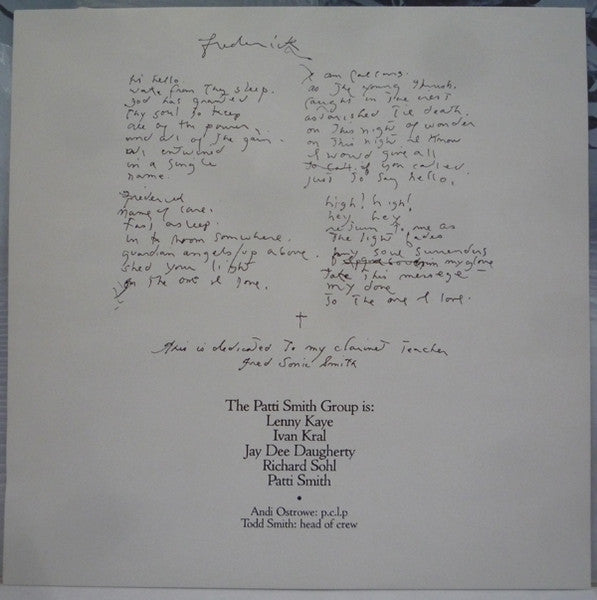 Frederick
hi hello
wake from thy sleep.
god has granted
thy soul to keep
all of the power,
and all of the gain.
all entwined
in a single
name.
Frederick
name of care.
fast asleep.
in a room somewhere.
guardian angels/up above.
shed your light
on the one I love.
I am calling.
as the young thrush.
caught in the
astonished til death.
on this night of wonder
on this night I know
I would give all
if you called
just to say hello.
high! high!
hey hey
return to me as
the light fades
my soul surrenders
in my glove
Take this message
my dove
To the one I love.
†
This is dedicated to my clarinet teacher
Fred Sonic Smith
The Patti Smith Group is:
Lenny Kaye
Ivan Kral
Jay Dee Daugherty
Richard Sohl
Patti Smith
•
Andi Ostrowe: p.c.l.p
Todd Smith: head of crew